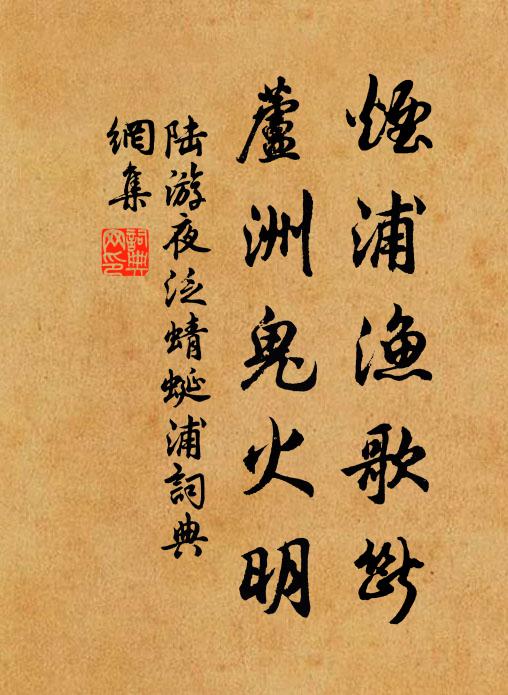 煙浦漁歌斷
蘆洲鬼火明
陆游夜泛蜻蜓浦詞典
網集
詞典網印